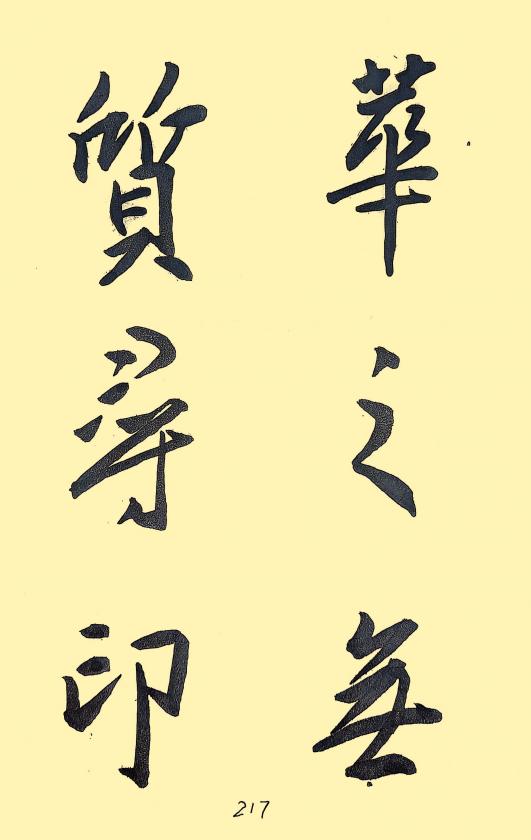 華之無
質尋印
217